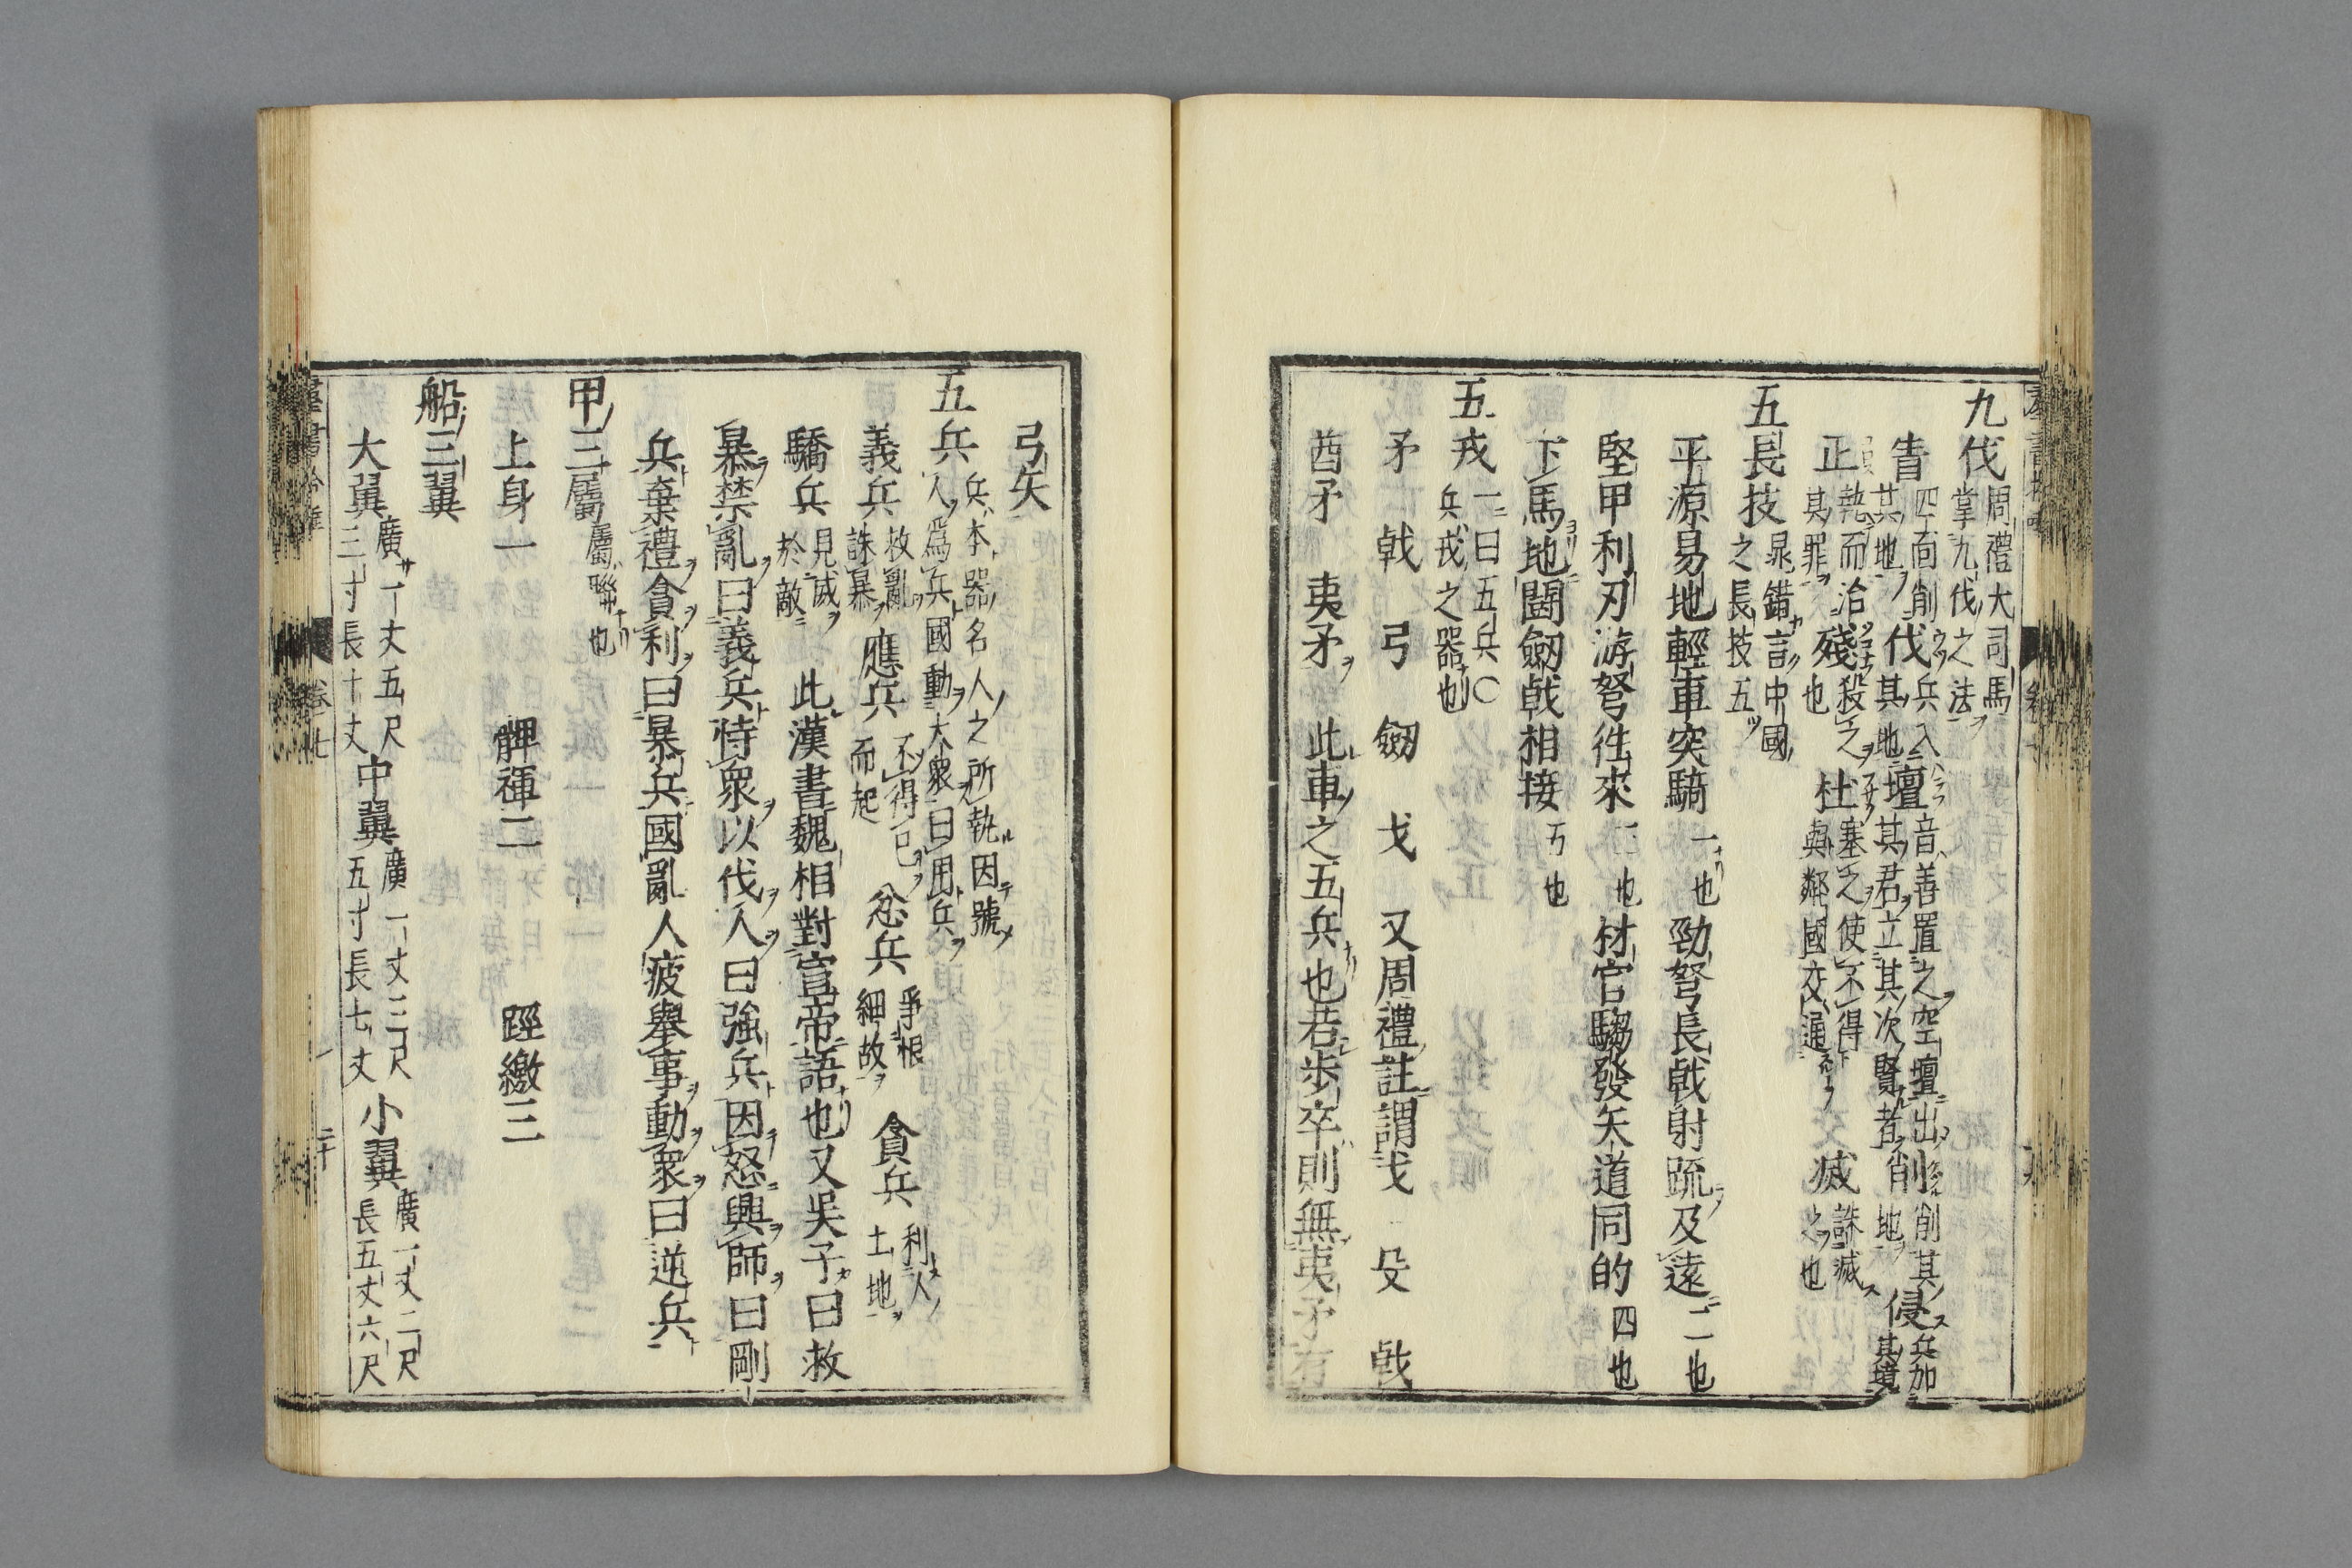 九伐周禮大司馬掌九伐之法
眚四面削其地伐兵入其地壇音善置之空壇出其君立其次賢者削削其地侵兵加其境
正執而治其罪殘殺之也杜塞之使不得與鄰國交通滅誅滅之也
五長技晁錯言中國之長技五
平源易地輕車突騎一也勁弩長戟射疏及遠二也
堅甲利刃游弩往來三也材官騶發矢道同的四也
下馬地鬪劔戟相接五也
五戎一曰五兵○兵戎之器也
矛 戟 弓 劔 戈 又周禮註謂戈 殳 戟
酋矛 夷矛 此車之五兵也若步卒則無夷矛有
弓矢
五兵兵本器名人之所執因號人爲兵國動大衆曰用兵
義兵救亂誅暴應兵不得已而起忿兵爭恨細故貪兵利人土地
驕兵見威於敵 此漢書魏相對宣帝語也又吳子曰救
暴禁亂曰義兵恃衆以伐人曰強兵因怒興師曰剛
兵棄禮貪利曰暴兵國亂人疲舉事動衆曰逆兵
甲三屬屬聯也
上身一 髀褌二 踁繳三
船三翼
大翼廣一丈五尺三寸長十丈中翼廣一丈三尺五寸長七丈小翼廣一丈二尺長五丈六尺
卷七 二十